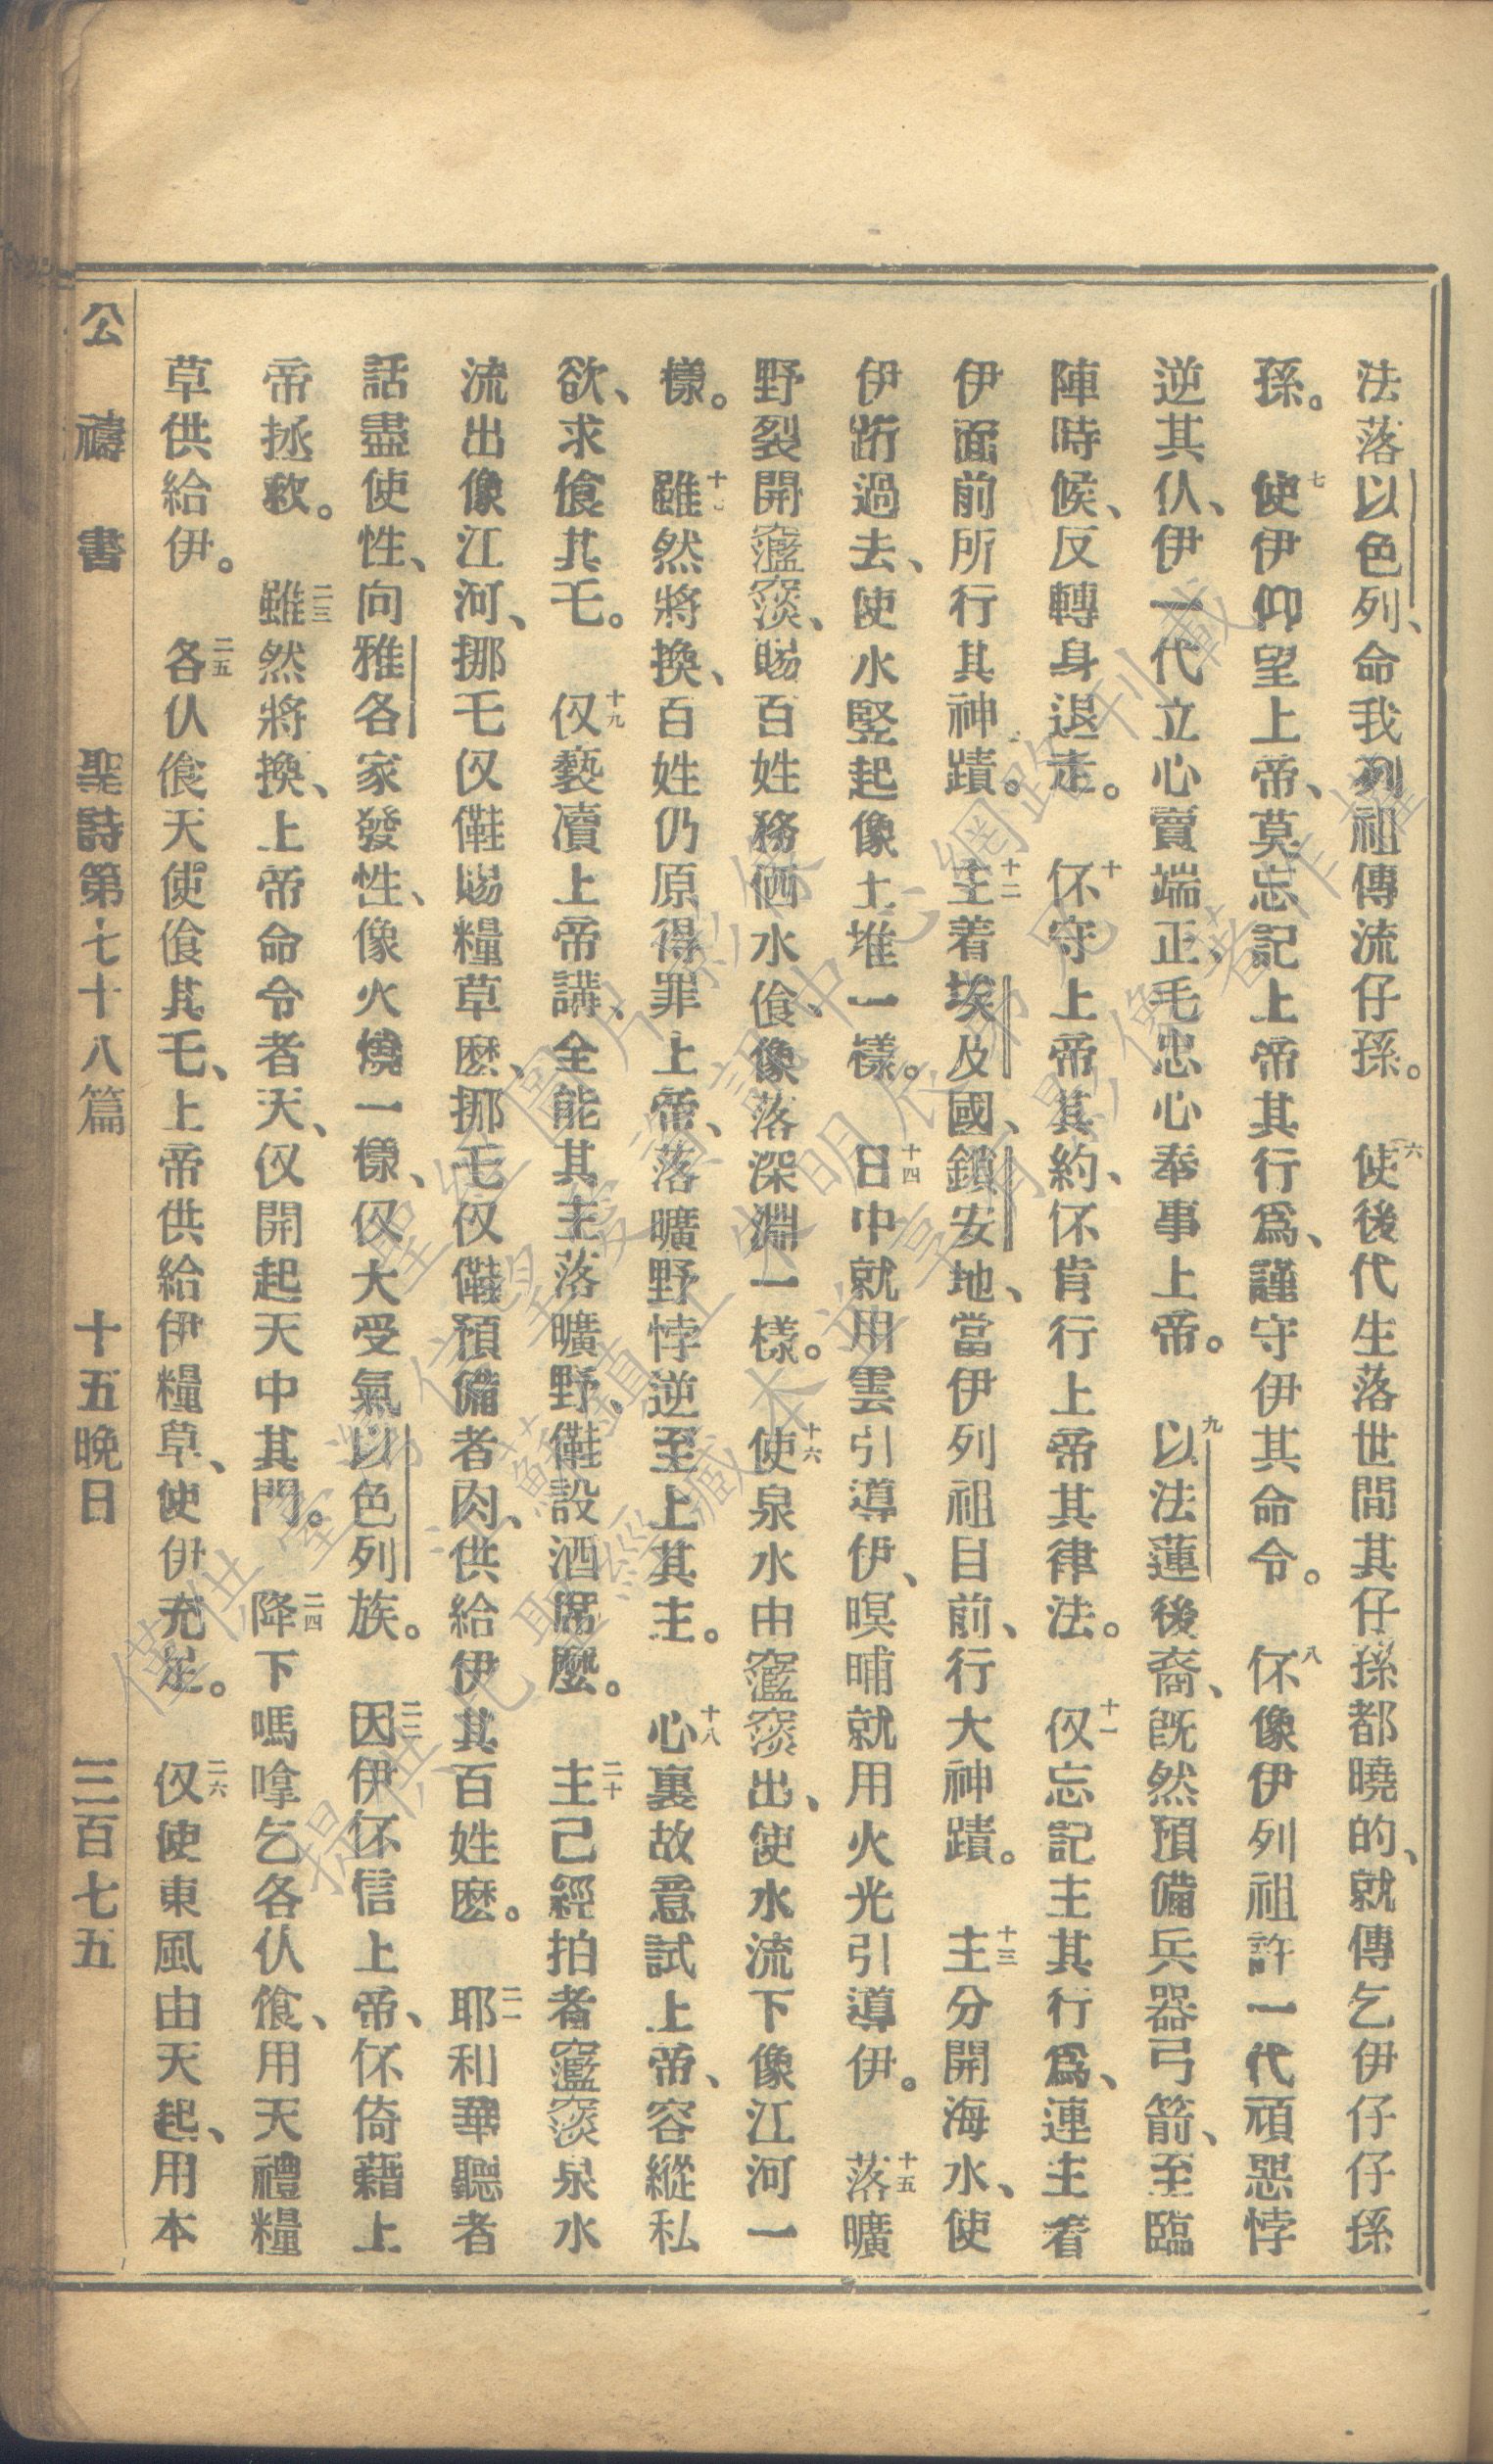 法落以色列、命我列祖傳流仔孫。六使後代生落世間其仔孫都曉的、就傳乞伊仔仔孫
孫。七使伊仰望上帝、莫忘記上帝其行爲、謹守伊其命令。八伓像伊列祖許一代頑惡悖
逆其仈、伊一代立心賣端正、毛忠心奉事上帝。九以法蓮後裔、旣然預備兵器弓箭、至臨
陣時候、反轉身退走。十伓守上帝其約、伓肯行上帝其律法。十一仅忘記主其行爲、連主着
伊面前所行其神蹟。十二主着埃及國、鎖安地、當伊列祖目前、行大神蹟。十三主分開海水、使
伊䟓過去、使水竪起像土堆一樣。十四日中就用雲引導伊、暝晡就用火光引導伊。十五落曠
野裂開𥕢𥕦、賜百姓務価水飡、像落深淵一樣。十六使泉水由𥕢𥕦出、使水流下像江河一
樣。十七雖然將換、百姓仍原得罪上帝、落曠野悖逆至上其主。十八心裏故意試上帝、容縱私
欲、求飡其乇。十九仅褻瀆上帝講、全能其主落曠野、𠆧設酒席麽。二十主已經拍者𥕢𥕦泉水
流出像江河、挪乇仅𠆧賜糧草麽、挪乇仅𠆧預備者肉、供給伊其百姓麽。二一耶和華聽者
話盡使性、向雅各家發性、像火燒一樣、仅大受氣以色列族。二二因伊伓信上帝、伓倚藉上
帝拯救。二三雖然將換、上帝命令者天、仅開起天中其門。二四降下嗎嗱乞各仈飡、用天禮糧
草供給伊。二五各仈飡天使飡其乇、上帝供給伊糧草、使伊充足。二六仅使東風由天起、用本
公禱書　聖詩第七十八篇　十五晚日　三百七五